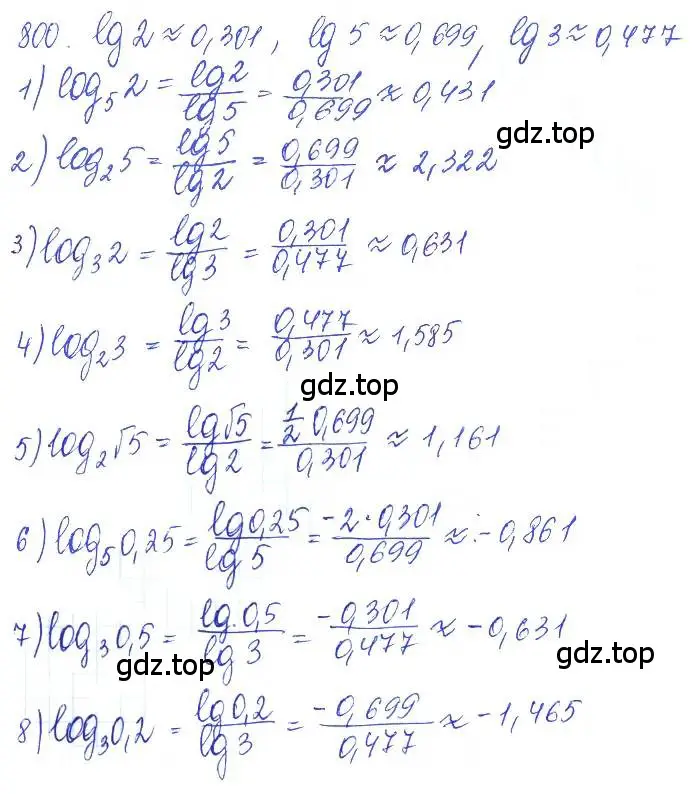 800. lg 2 ≈ 0,301, lg 5 ≈ 0,699, lg 3 ≈ 0,477
1) log₅2 = lg2/lg5 = 0,301/0,699 ≈ 0,431
gdz.top
2) log₂5 = lg5/lg2 = 0,699/0,301 ≈ 2,322
3) log₃2 = lg2/lg3 = 0,301/0,477 ≈ 0,631
4) log₂3 = lg3/lg2 = 0,477/0,301 ≈ 1,585
gdz.top
5) log₂√5 = lg√5/lg2 = ½ 0,699/0,301 ≈ 1,161
6) log₅0,25 = lg0,25/lg5 = -2·0,301/0,699 ≈ -0,861
7) log₃0,5 = lg.0,5/lg3 = -0,301/0,477 ≈ -0,631
gdz.top
gdz.top
8) log₃0,2 = lg0,2/lg3 = -0,699/0,477 ≈ -1,465